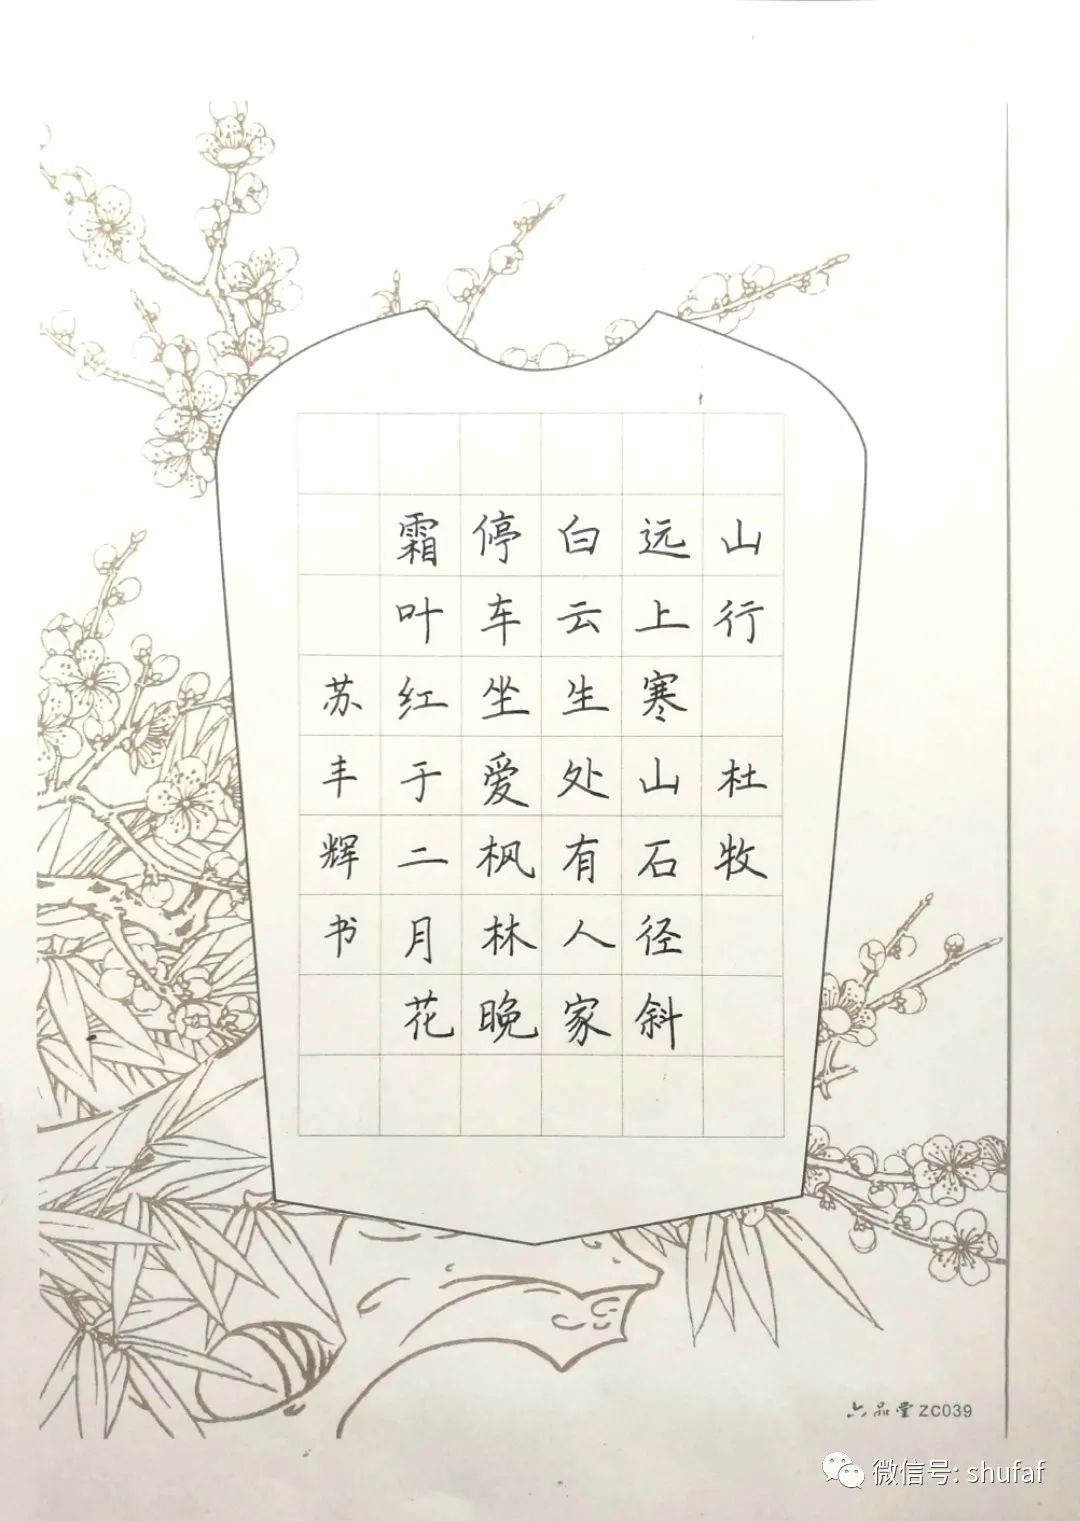 山行 杜牧
远上寒山石径斜
白云生处有人家
停车坐爱枫林晚
霜叶红于二月花
苏丰辉书
六品堂 ZC039
微信号: shufaf